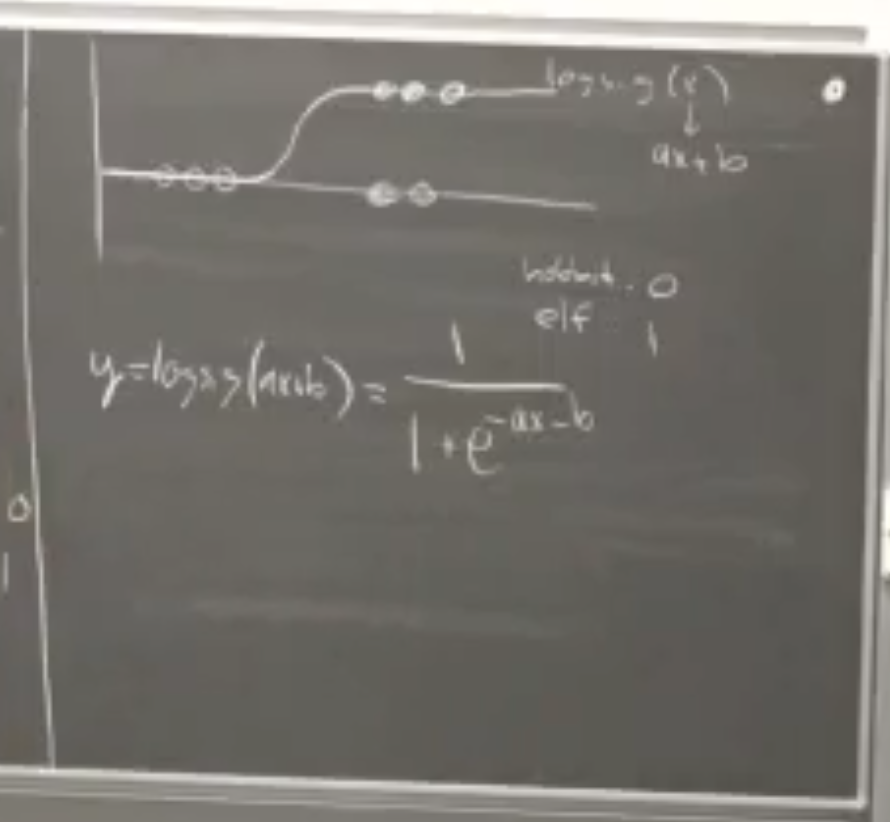 logsig(x)
↓
ax+b
hobbit. 0
elf 1
y=logsig(ax+b) = 1 / 1+e^-ax-b
0
1